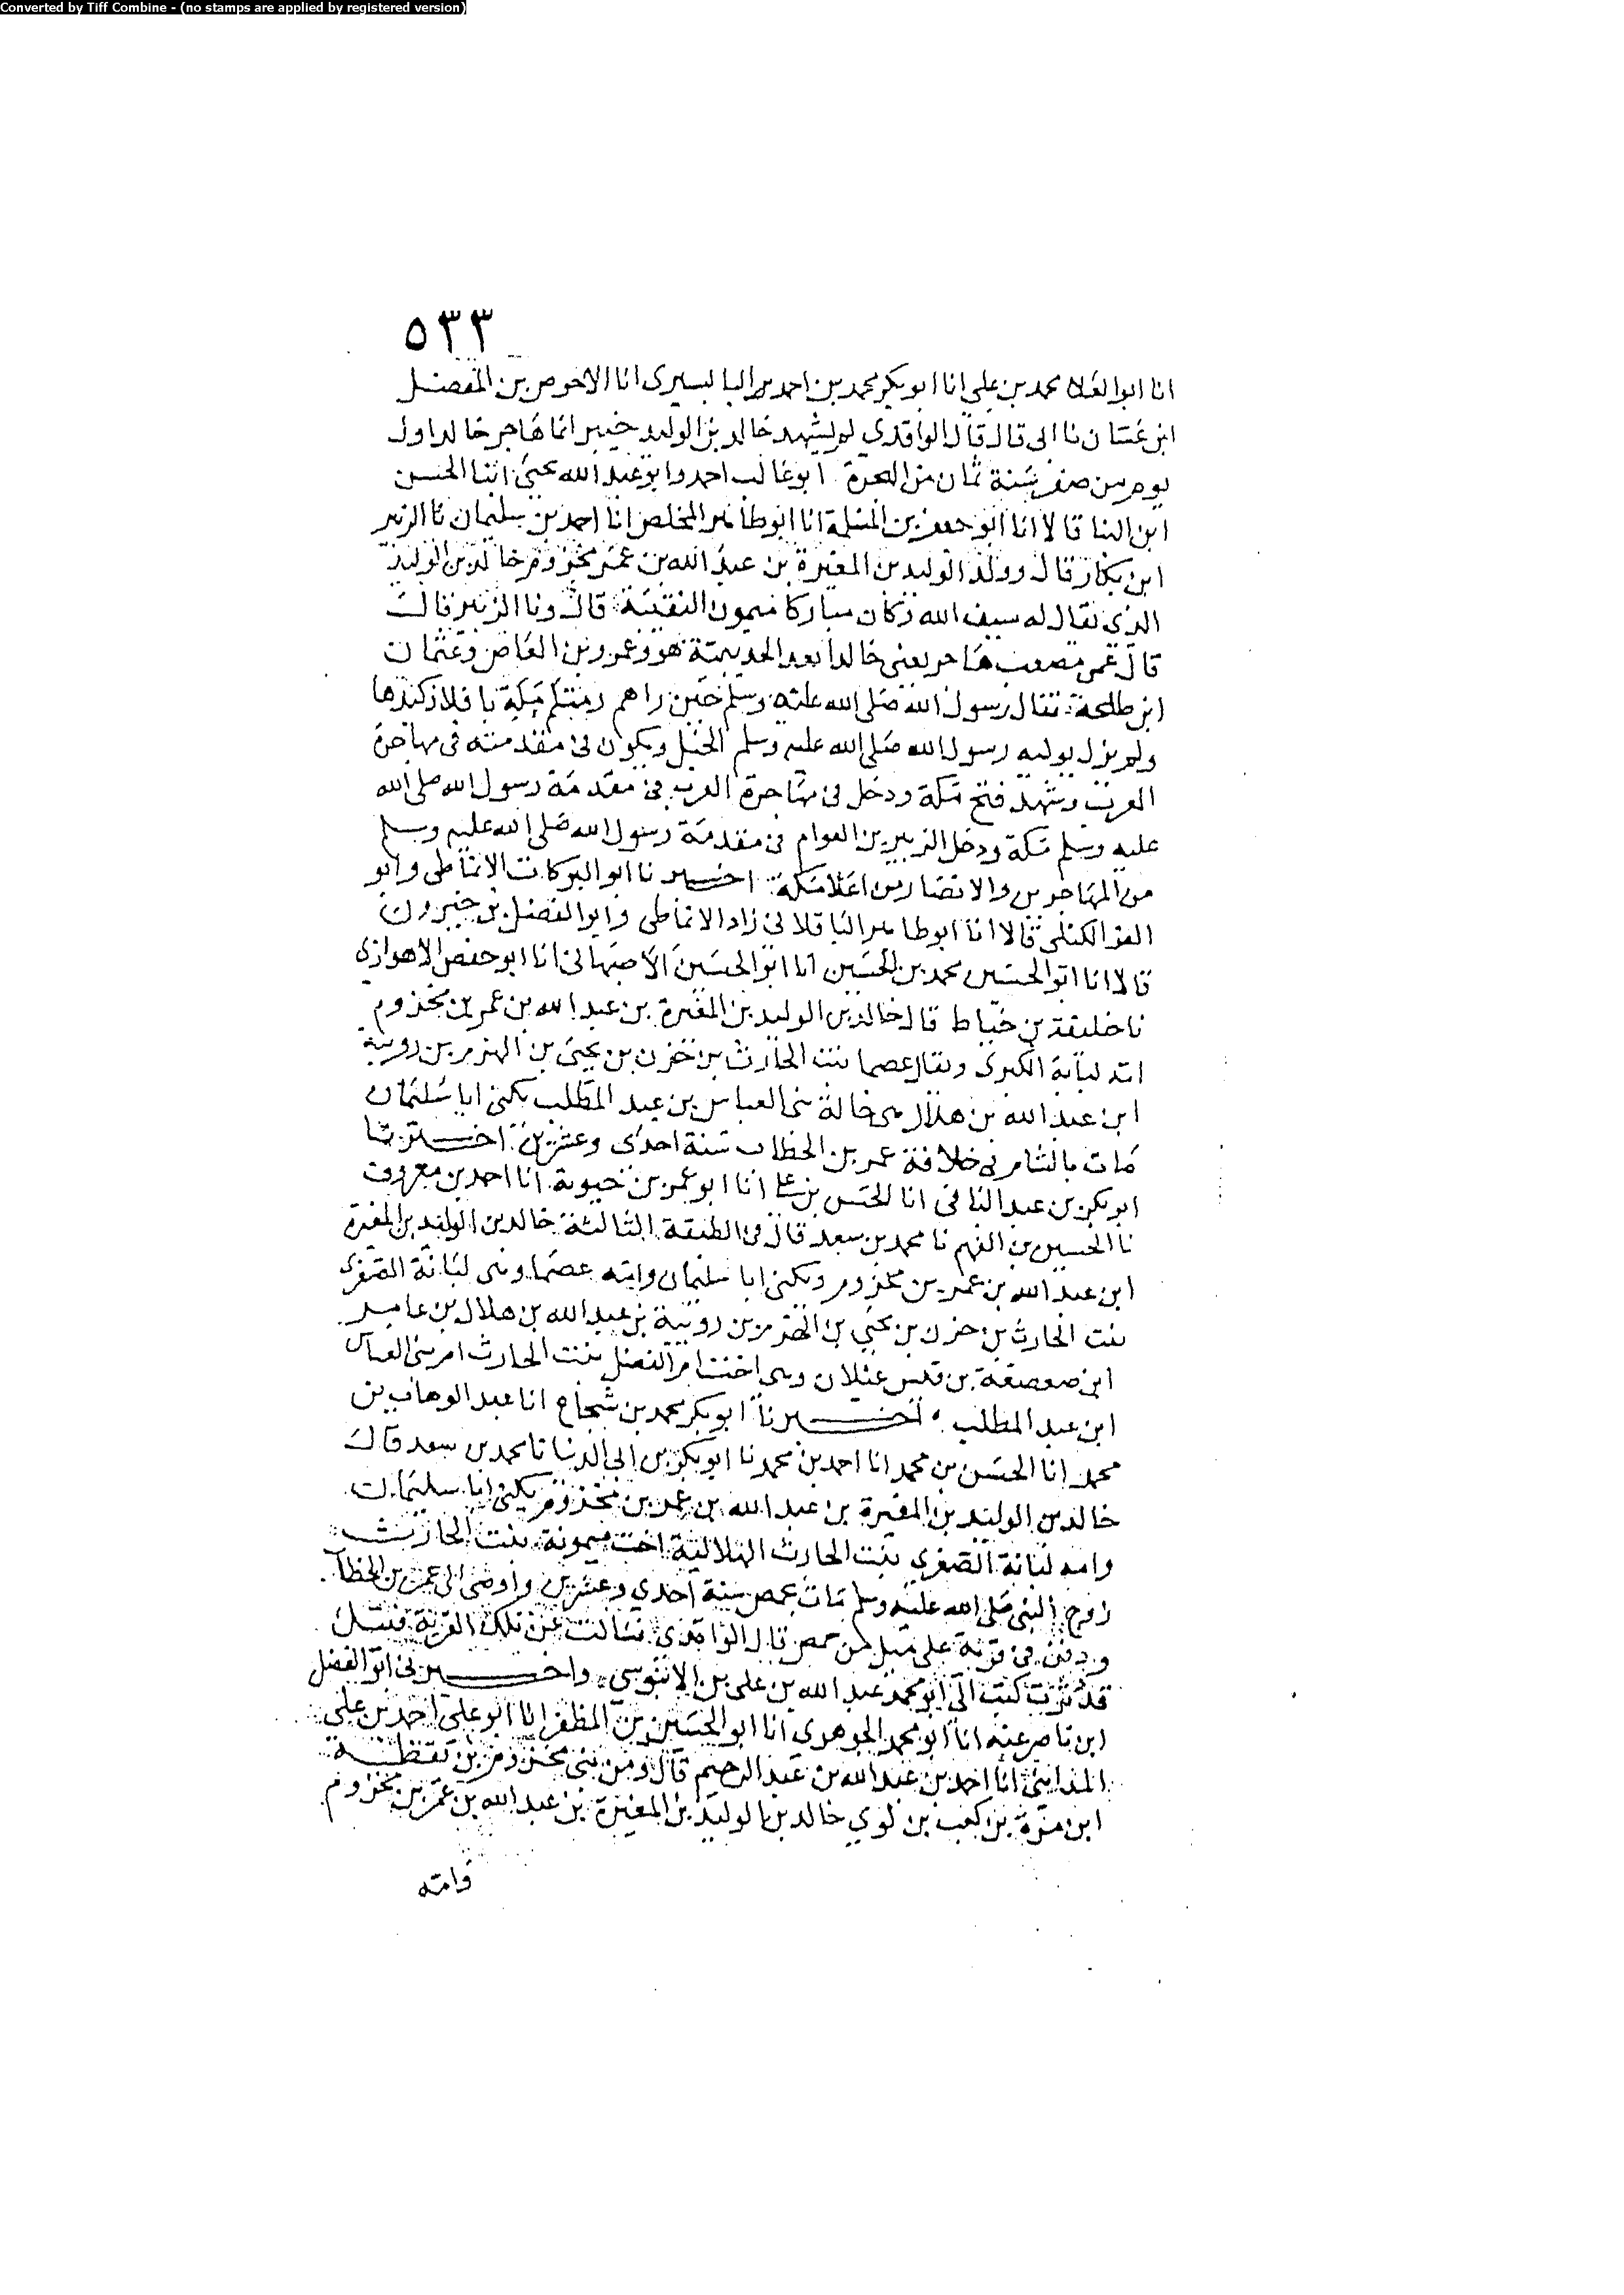 Converted by Tiff Combine - (no stamps are applied by registered version)
٥٣٣
انا ابو العلا محمد بن علي انا ابو بكر محمد بن احمد البابسيري انا الاحوص بن المفضل
ابن غسان نا ابي قال قال الواقدي لم يشهد خالد بن الوليد خيبر انما هاجر خالد اول
يوم من صفر سنة ثمان من الهجرة ابو غالب احمد وابو عبد الله يحيى ابنا الحسن
ابن البنا قالا انا ابو جعفر بن المسلمة انا ابو طاهر المخلص انا احمد بن سليمان نا الزبير
ابن بكار قال وولد الوليد بن المغيرة بن عبد الله بن عمر بن مخزوم خالد بن الوليد
الذي يقال له سيف الله وكان مباركا ميمون النقيبة قال ونا الزبير قال
قال عمي مصعب هاجر يعني خالدا بعد الحديبية هو وعمرو بن العاص وعثمان
ابن طلحة فقال رسول الله صلى الله عليه وسلم حين راهم رمتكم مكة بافلاذ كبدها
ولم يزل يوليه رسول الله صلى الله عليه وسلم الخيل ويكون في مقدمته في مهاجرة
العرب وشهد فتح مكة ودخل في مهاجرة العرب في مقدمة رسول الله صلى الله
عليه وسلم مكة ودخل الزبير بن العوام في مقدمة رسول الله صلى الله عليه وسلم
من المهاجرين والانصار من اعلا مكة اخبرنا ابو البركات الانماطي وابو
العز الكيلي قالا انا ابو طاهر الباقلاني زاد الانماطي وابو الفضل بن خيرون
قالا انا ابو الحسين محمد بن الحسين انا ابو الحسين الاصبهاني انا ابو حفص الاهوازي
نا خليفة بن خياط قال خالد بن الوليد بن المغيرة بن عبد الله بن عمر بن مخزوم
امه لبابة الكبرى ويقال عصما بنت الحارث بن حزن بن يحيى بن الهزم بن رويبة
ابن عبد الله بن هلال هي خالة بني العباس بن عبد المطلب يكنى ابا سليمان
مات بالشام في خلافة عمر بن الخطاب سنة احدى وعشرين اخبرنا
ابو بكر بن عبد الباقي انا الحسن بن علي انا ابو عمر بن حيوية انا احمد بن معروف
نا الحسين بن الفهم نا محمد بن سعد قال في الطبقة الثالثة خالد بن الوليد بن المغيرة
ابن عبد الله بن عمر بن مخزوم ويكنى ابا سليمان وامه عصما وهي لبابة الصغرى
بنت الحارث بن حزن بن يحيى بن الهزم بن رويبة بن عبد الله بن هلال بن عامر
ابن صعصعة بن قيس عيلان وهي اخت ام الفضل بنت الحارث ام بني العباس
ابن عبد المطلب اخبرنا ابو بكر محمد بن شجاع انا عبد الوهاب بن
محمد انا الحسن بن محمد انا احمد بن محمد نا ابو بكر بن ابي الدنيا نا محمد بن سعد قال
خالد بن الوليد بن المغيرة بن عبد الله بن عمر بن مخزوم يكنى ابا سليمان
وامه لبابة الصغرى بنت الحارث الهلالية اخت ميمونة بنت الحارث
زوج النبي صلى الله عليه وسلم مات بحمص سنة احدي وعشرين واوصى الى عمر بن الخطاب
ودفن في قرية على ميل من حمص قال الواقدي فسالت عن تلك القرية فقيل
قد دثرت كتب الي ابو محمد عبد الله بن علي بن الابنوسي واخبرني ابو الفضل
ابن ناصر عنه انا ابو محمد الجوهري انا ابو الحسين بن المظفر انا ابو علي احمد بن علي
المدايني انا احمد بن عبد الله بن عبد الرحيم قال ومن بني مخزوم بن يقظة
ابن مرة بن كعب بن لوي خالد بن الوليد بن المغيرة بن عبد الله بن عمر بن مخزوم
وامه